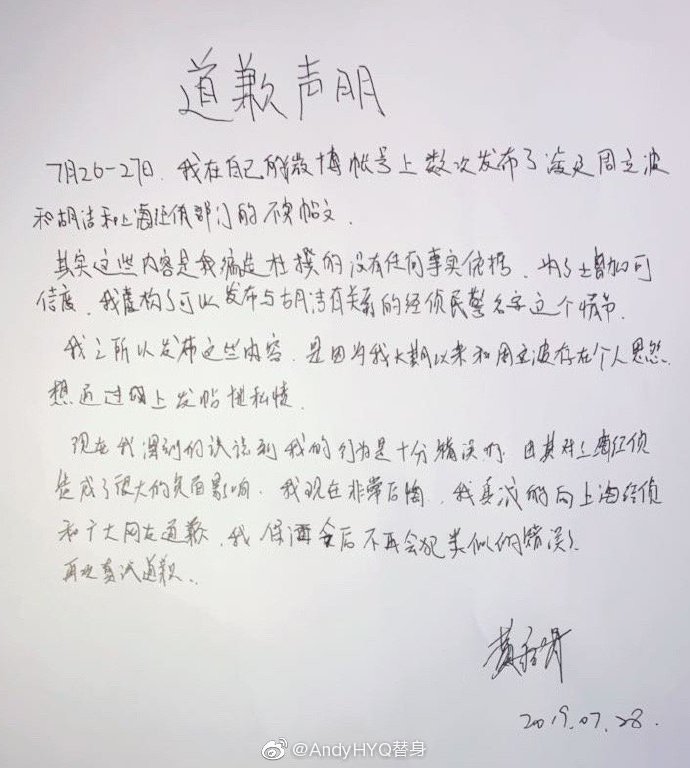 道歉声明
7月26-27日,我在自己的微博帐号上数次发布了涉及周立波
和胡洁和上海经侦部门的不实帖文.
其实这些内容是我编造杜撰的没有任何事实依据,为了增加可
信度,我虚构了可以发布与胡洁有关系的经侦民警名字这个情节.
我之所以发布这些内容,是因为我长期以来和周立波存在个人恩怨.
想通过网上发帖泄私愤.
现在我深刻的认识到我的行为是十分错误的.由其对上海经侦
造成了很大的负面影响.我现在非常后悔,我真诚的向上海经侦
和广大网友道歉,我保证今后不再会犯类似的错误.
再次真诚道歉.
2019.07.28.
@AndyHYQ替身